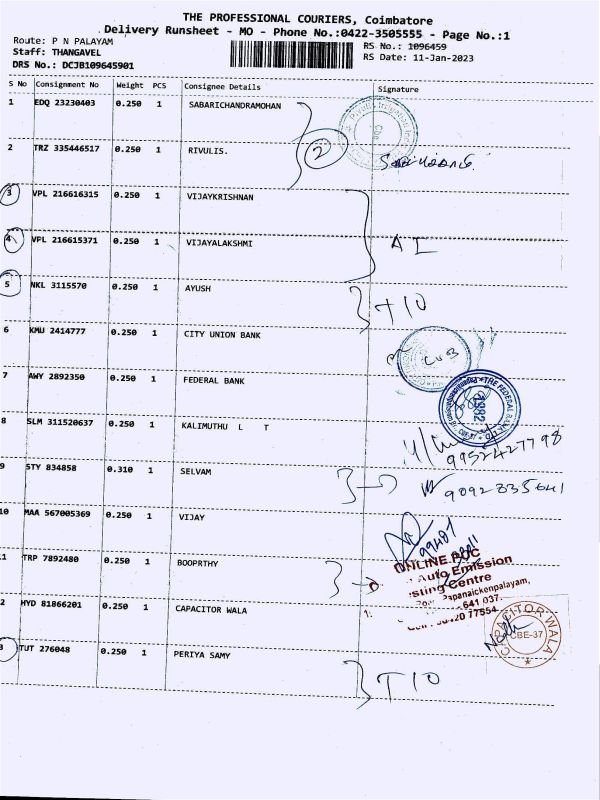 THE PROFESSIONAL COURIERS, Coimbatore
Delivery Runsheet - MO - Phone No.:0422-3505555 - Page No.:1
Route: P N PALAYAM
RS No.: 1096459
Staff: THANGAVEL
RS Date: 11-Jan-2023
DRS No.: DCJB109645901
S No Consignment No Weight PCS Consignee Details Signature
1 EDQ 23230403 0.250 1 SABARICHANDRAMOHAN
2
2 TRZ 335446517 0.250 1 RIVULIS.
3 VPL 216616315 0.250 1 VIJAYKRISHNAN
4 VPL 216615371 0.250 1 VIJAYALAKSHMI
5 NKL 3115570 0.250 1 AYUSH
6 KMU 2414777 0.250 1 CITY UNION BANK
CUB
7 AWY 2892350 0.250 1 FEDERAL BANK
THE FEDERAL BANK
1982
8 SLM 311520637 0.250 1 KALIMUTHU L T
9952427798
9 STY 834858 0.310 1 SELVAM
9092835641
10 MAA 567005369 0.250 1 VIJAY
11 TRP 7892480 0.250 1 BOOPRTHY
ONLINE.POC
Auto Emission
sting Centre
Papanaickenpalayam,
641 037.
20 77554
2 HYD 81866201 0.250 1 CAPACITOR WALA
CAPACITOR WALA
CBE-37
3 TUT 276048 0.250 1 PERIYA SAMY